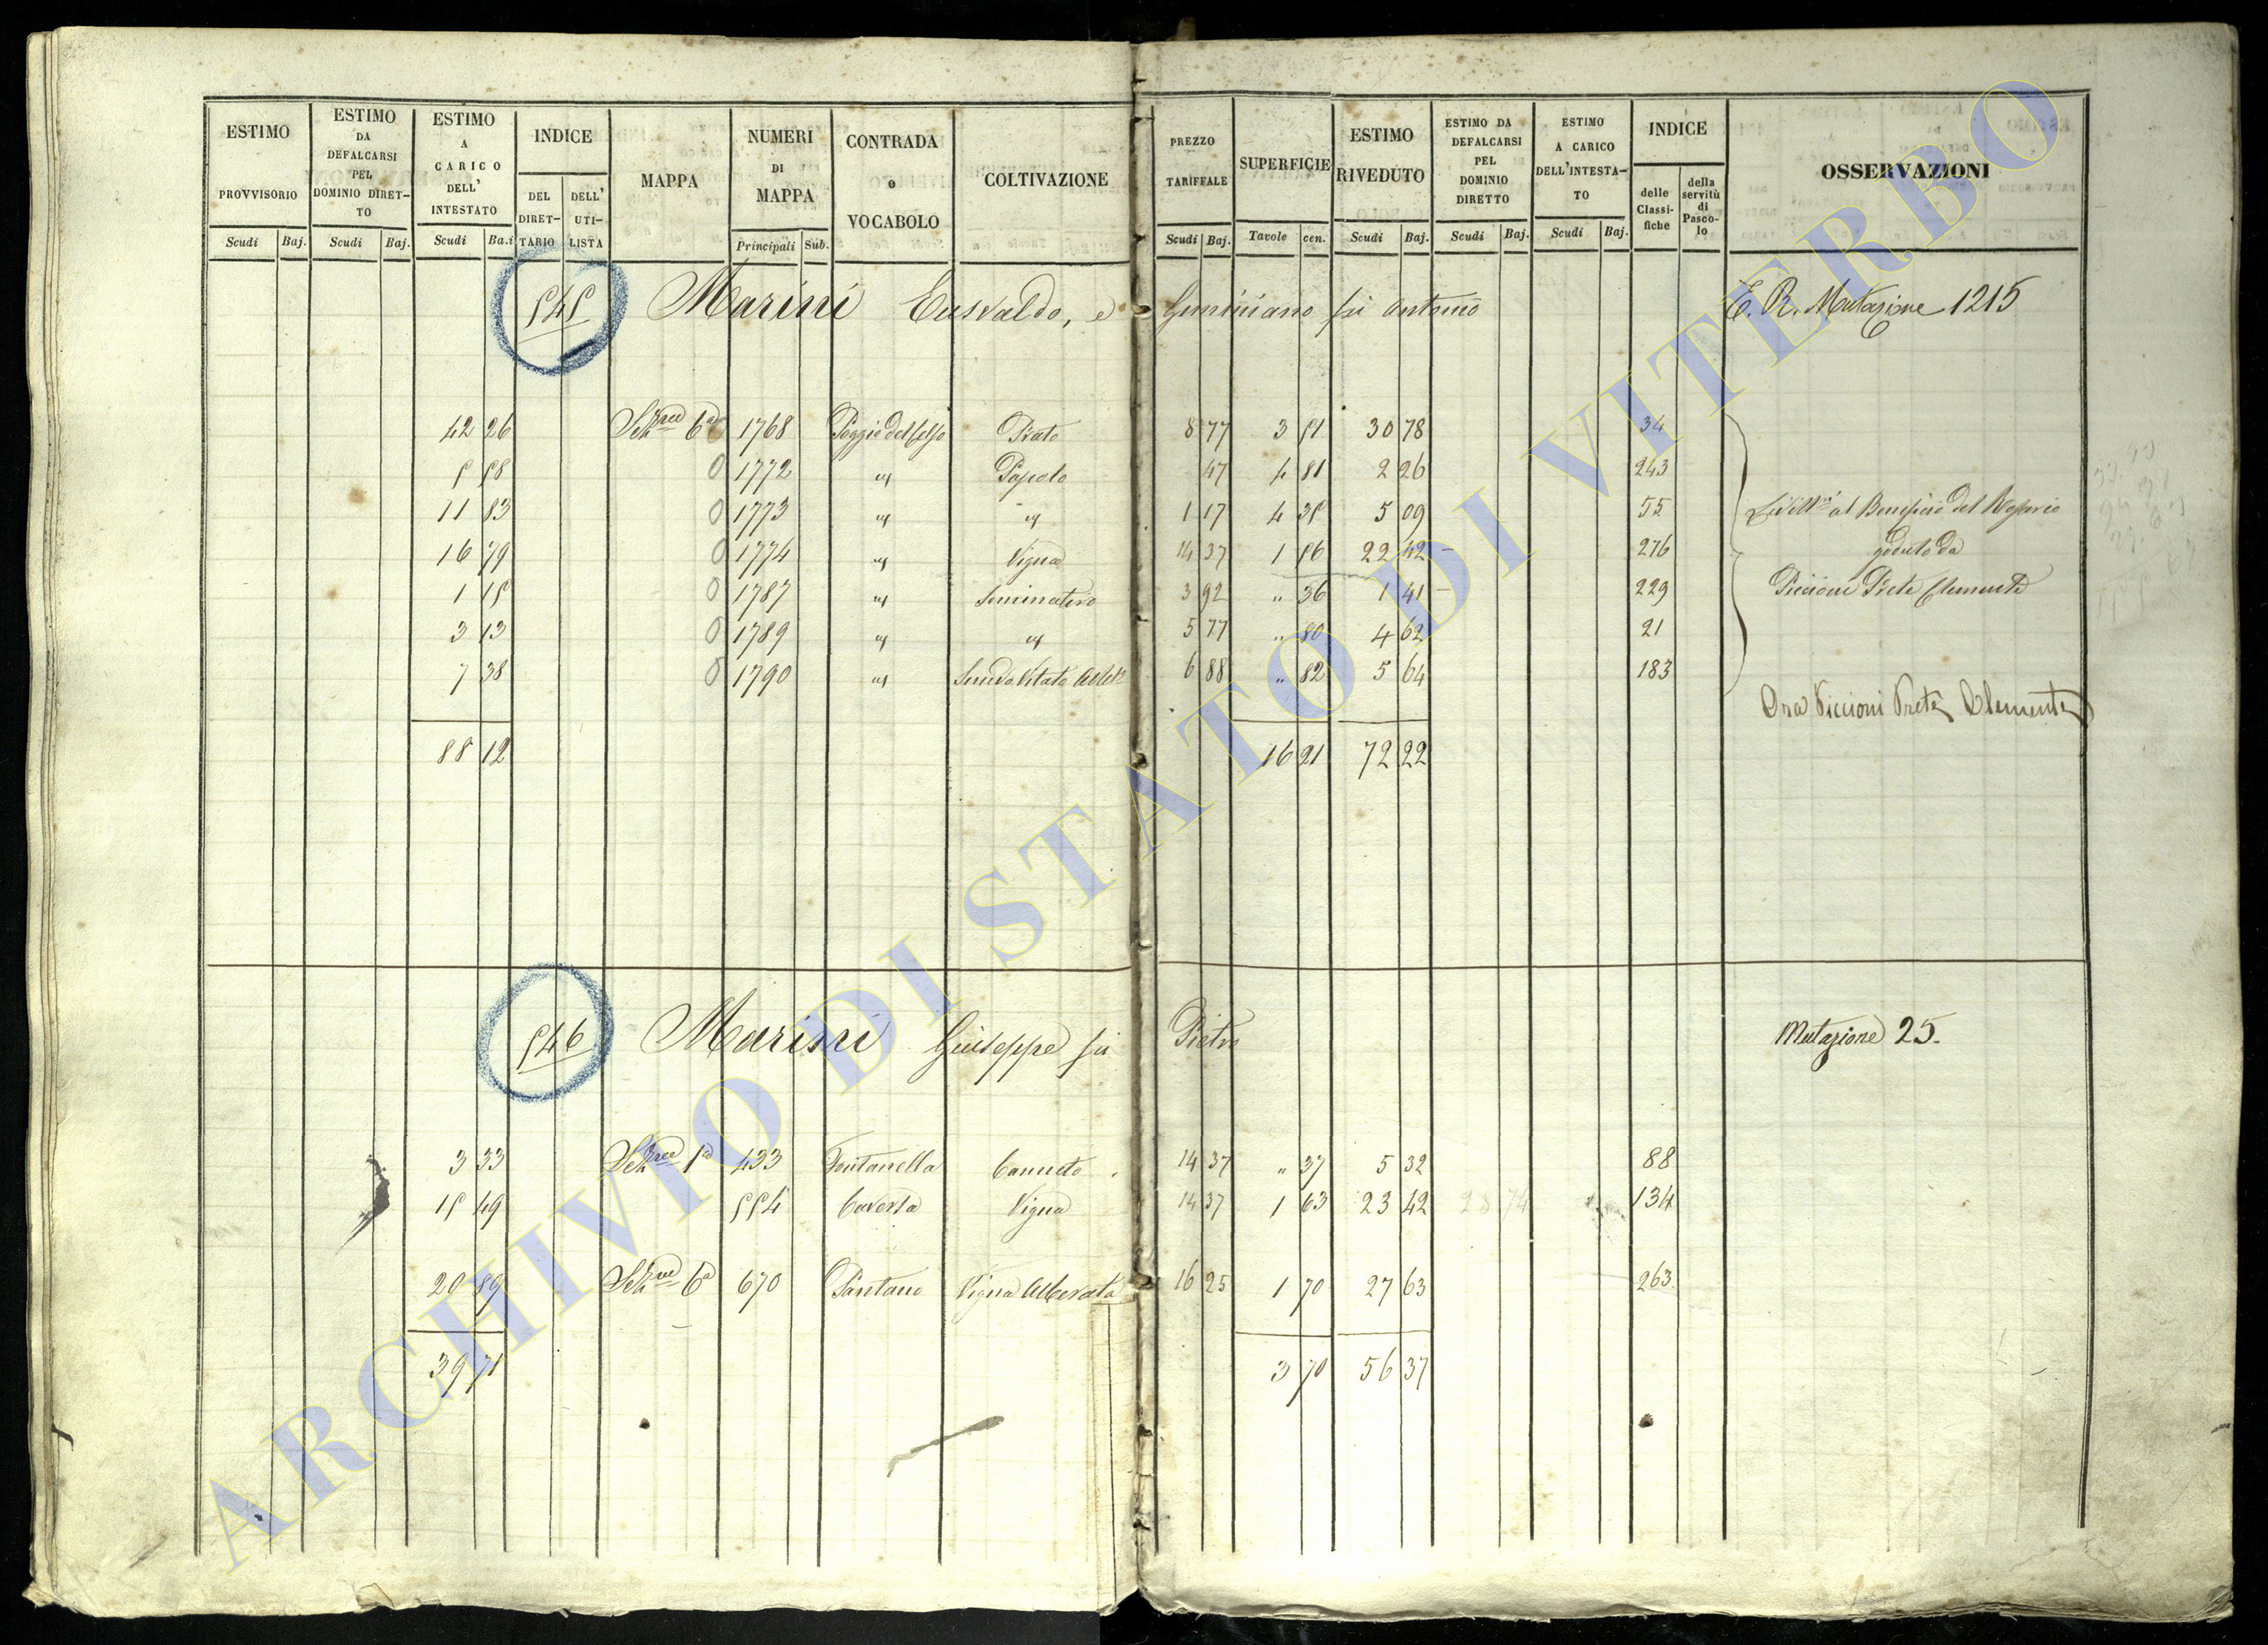 ESTIMO PROVVISORIO
Scudi Baj.
ESTIMO DA DEFALCARSI PEL DOMINIO DIRET-TO
Scudi Baj.
ESTIMO A CARICO DELL' INTESTATO
Scudi Ba.i
INDICE
DEL DIRET-TARIO
DELL' UTI-LISTA
MAPPA
NUMERI DI MAPPA
Principali Sub.
CONTRADA o VOCABOLO
COLTIVAZIONE
PREZZO TARIFFALE
Scudi Baj.
SUPERFICIE
Tavole cen.
ESTIMO RIVEDUTO
Scudi Baj.
ESTIMO DA DEFALCARSI PEL DOMINIO DIRETTO
Scudi Baj.
ESTIMO A CARICO DELL'INTESTA-TO
Scudi Baj.
INDICE
delle Classi-fiche
della servitù di Pasco-lo
OSSERVAZIONI
545 Marini Eusvaldo, e Geminiano fu Antonio
E. R. Mutazione 1215
42 26 Sez.ne 6a 1768 Poggio del Gelso Prato 8 77 3 51 30 78 34
5 58 0 1772 " Pascolo 47 4 81 2 26 243
11 83 0 1773 " " 1 17 4 35 5 09 55
16 79 0 1774 " Vigna 14 37 1 56 22 42 276
1 15 0 1787 " Seminativo 3 92 " 36 1 41 229
3 13 0 1789 " " 5 77 " 80 4 62 21
7 38 0 1790 " 6 88 " 82 5 64 183
al Beneficio del Rosario
goduto da
Piccioni Prete Clemente
Ora Piccioni Prete Clemente
88 12 16 21 72 22
546 Marini Giuseppe fu Pietro
Mutazione 25.
3 33 Sez.ne 1a 433 Fontanella Canneto 14 37 " 37 5 32 88
15 49 554 Vigna 14 37 1 63 23 42 28 74 134
20 89 Sez.ne 6a 670 Pantano Vigna Alberata 16 25 1 70 27 63 263
39 71 3 70 56 37
ARCHIVIO DI STATO DI VITERBO